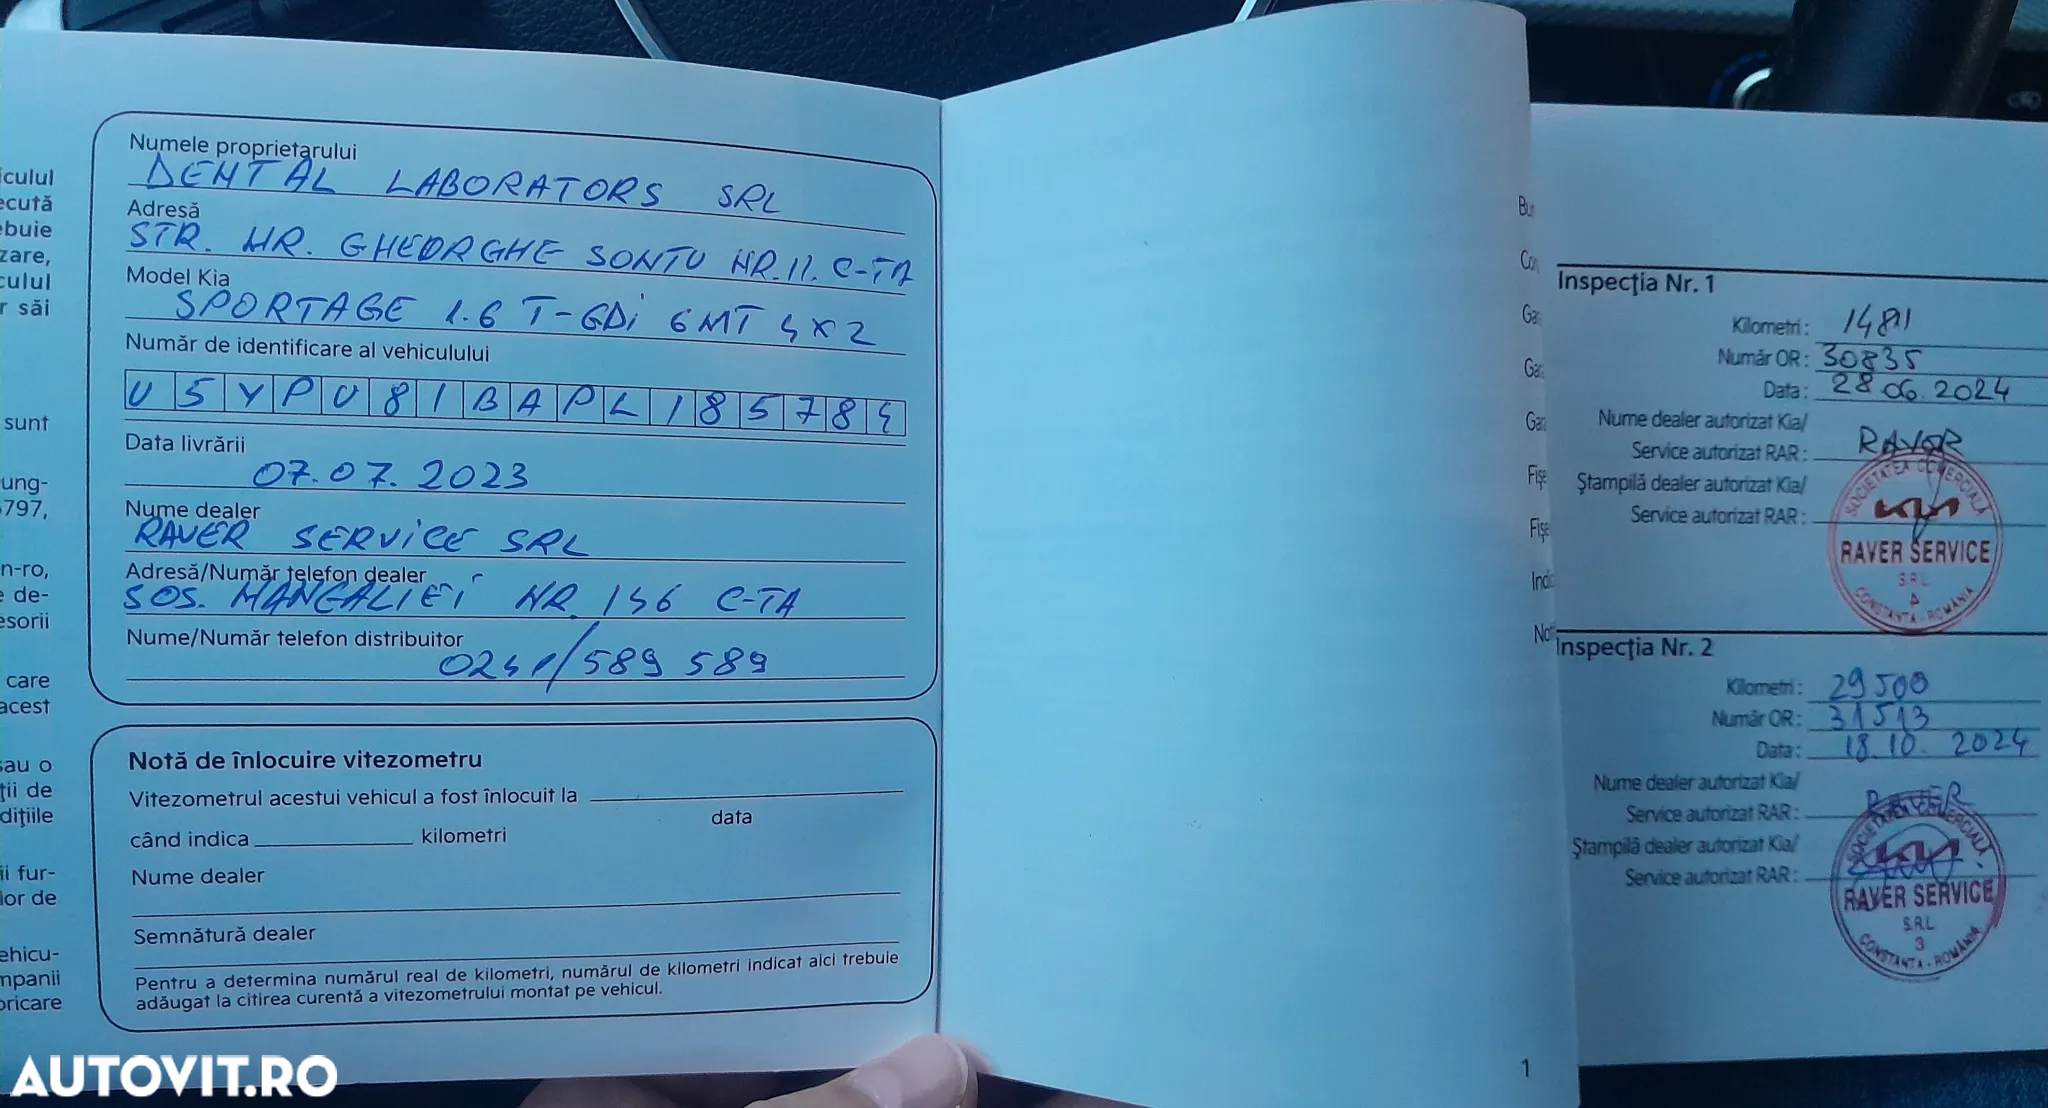 iculul
ecută
ebuie
zare,
culul
r săi
sunt
ung-
5797,
n-ro,
e de-
esorii
care
acest
sau o
ții de
dițiile
ii fur-
ior de
ehicu-
mpanii
bricare
Numele proprietarului
DENTAL LABORATORS SRL
Adresă
STR. HR. GHEORGHE SONTU NR. 11. C-TA
Model Kia
SPORTAGE 1.6 T-GDi 6MT 4x2
Număr de identificare al vehiculului
U5YPU81BAPL185784
Data livrării
07.07.2023
Nume dealer
RAVER SERVICE SRL
Adresă/Număr telefon dealer
SOS. MANGALIEI NR. 146 C-TA
Nume/Număr telefon distribuitor
0241/589 589
Notă de înlocuire vitezometru
Vitezometrul acestui vehicul a fost înlocuit la
data
când indica kilometri
Nume dealer
Semnătură dealer
Pentru a determina numărul real de kilometri, numărul de kilometri indicat aici trebuie
adăugat la citirea curentă a vitezometrului montat pe vehicul.
1
Bu
Con
Gar
Gara
Gara
Fișe
Fișe
Indi
Not
Inspecția Nr. 1
Kilometri : 14811
Număr OR : 30835
Data : 28 06. 2024
Nume dealer autorizat Kia/
Service autorizat RAR : RAVER
Ștampilă dealer autorizat Kia/
Service autorizat RAR :
SOCIETATEA COMERCIALĂ
KIA
RAVER SERVICE
S.R.L.
4
CONSTANȚA - ROMÂNIA
Inspecția Nr. 2
Kilometri : 29500
Număr OR : 31513
Data : 18.10. 2024
Nume dealer autorizat Kia/
Service autorizat RAR : RAVER
Ștampilă dealer autorizat Kia/
Service autorizat RAR :
SOCIETATEA COMERCIALĂ
KIA
RAVER SERVICE
S.R.L.
3
CONSTANȚA - ROMÂNIA
AUTOVIT.RO